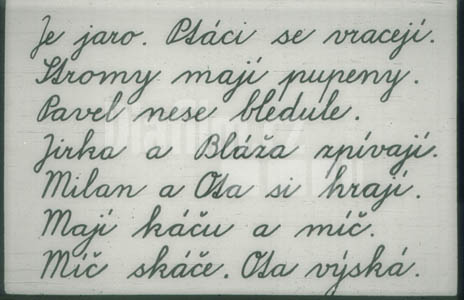 Je jaro. Ptáci se vracejí.
Stromy mají pupeny.
Pavel nese bledule.
Jirka a Bláža zpívají.
Milan a Ota si hrají.
Mají káču a míč.
Míč skáče. Ota výská.